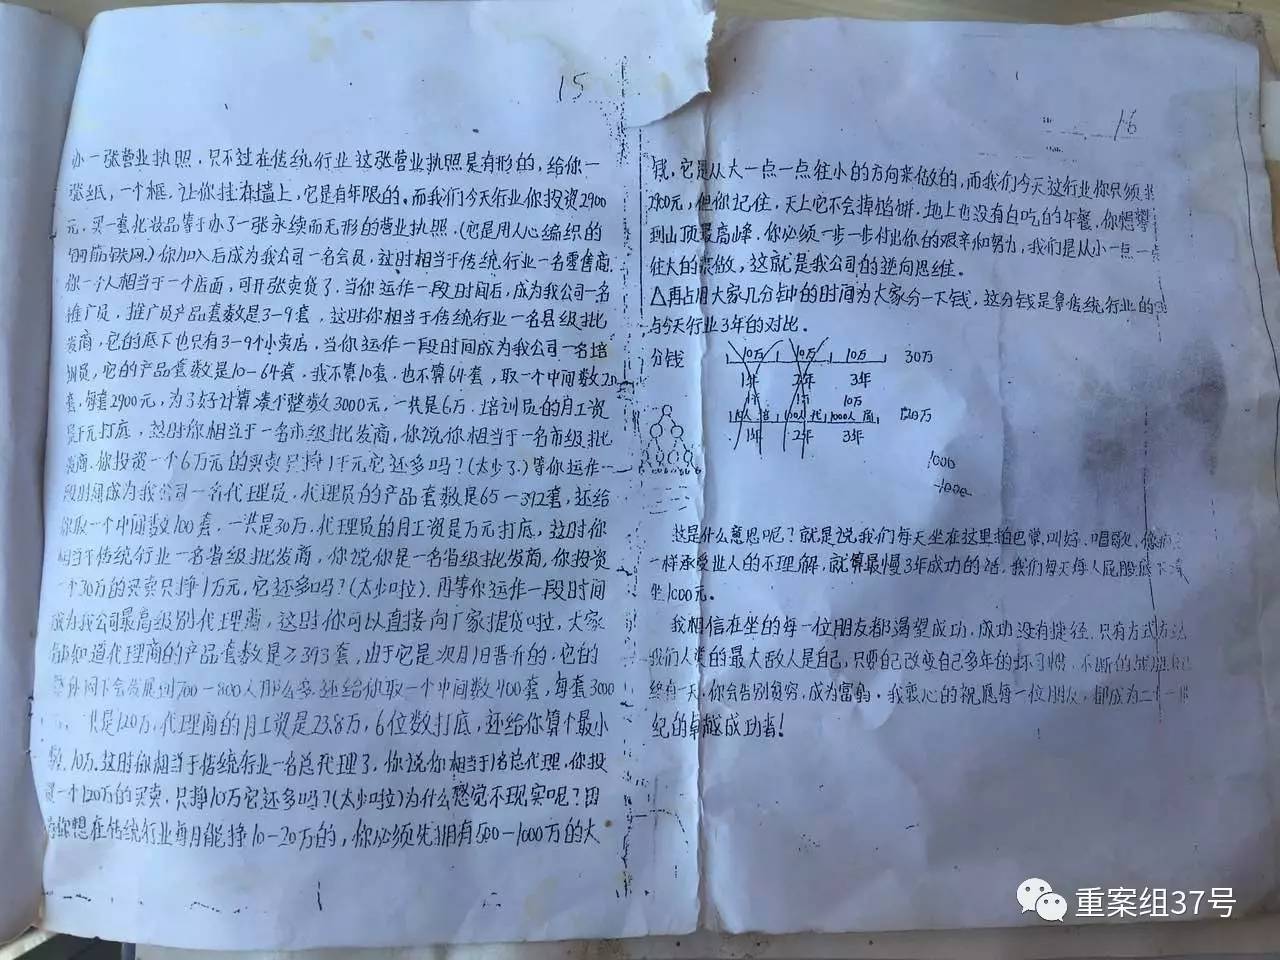 15
办一张营业执照，只不过在传统行业这张营业执照是有形的，给你一
张纸，一个框，让你挂在墙上，它是有年限的。而我们今天行业你投资2900
元，买一套化妆品等于办了一张永续而无形的营业执照。（它是用人心编织的
钢筋铁网）你加入后成为我公司一名会员，这时相当于传统行业一名零售商.
你一个人相当于一个店面，可开张卖货了。当你运作一段时间后，成为我公司一名
推广员，推广员产品套数是3-9套，这时你相当于传统行业一名县级批
发商，它的底下也只有3-9个小卖店，当你运作一段时间成为我公司一名培
训员，它的产品套数是10-64套。我不算10套.也不算64套，取一个中间数20
套，每套2900元，为了好计算凑个整数3000元，一共是6万.培训员的月工资
是千元打底，这时你相当于一名市级批发商，你说你相当于一名市级批
发商.你投资一个6万元的买卖只挣1千元它还多吗？（太少了.）等你运作一
段时间成为我公司一名代理员，代理员的产品套数是65-392套，还给
你取一个中间数100套.一共是30万.代理员的月工资是万元打底，这时你
相当于传统行业一名省级批发商，你说你是一名省级批发商，你投资
一个30万的买卖只挣1万元，它还多吗？（太少啦）.再等你运作一段时间
成为我公司最高级别代理商，这时你可以直接向厂家提货啦，大家
都知道代理商的产品套数是≥393套，由于它是次月1日晋升的.它的
网下会发展到700-800人那么多.还给你取一个中间数400套，每套3000
元，一共是120万，代理商的月工资是23.8万，6位数打底，还给你算个最小
数，10万.这时你相当于传统行业一名总代理了.你说你相当于1名总代理.你投
资一个120万的买卖.只挣10万它还多吗？（太少啦）为什么感觉不现实呢？因
为你想在传统行业每月能挣10-20万的，你必须先拥有500-1000万的大
16
钱，它是从大一点一点往小的方向来做的，而我们今天这行业你只须
2900元，但你记住，天上它不会掉馅饼.地上也没有白吃的午餐，你想攀
到山顶最高峰.你必须一步一步付出你的艰辛和努力，我们是从小一点一
往大的来做，这就是我公司的逆向思维。
△再占用大家几分钟的时间为大家分一下钱，这分钱是拿传统行业的3年
与今天行业3年的对比。
分钱 10万 10万 10万 30万
1年 2年 3年
1万 10万
100人 1000人 商
1年 2年 3年
1000
-1000
这是什么意思呢？就是说我们每天坐在这里拍巴掌，叫好.唱歌，像
一样承受世人的不理解，就算最慢3年成功的话.我们每天每人屁股底下
坐1000元。
我相信在坐的每一位朋友都渴望成功，成功没有捷径.只有方式方法
我们人类的最大敌人是自己，只要自己改变自己多年的坏习惯，不断的
终有一天.你会告别贫穷，成为富翁.我衷心的祝愿每一位朋友，都成为二十一世
纪的卓越成功者！
重案组37号